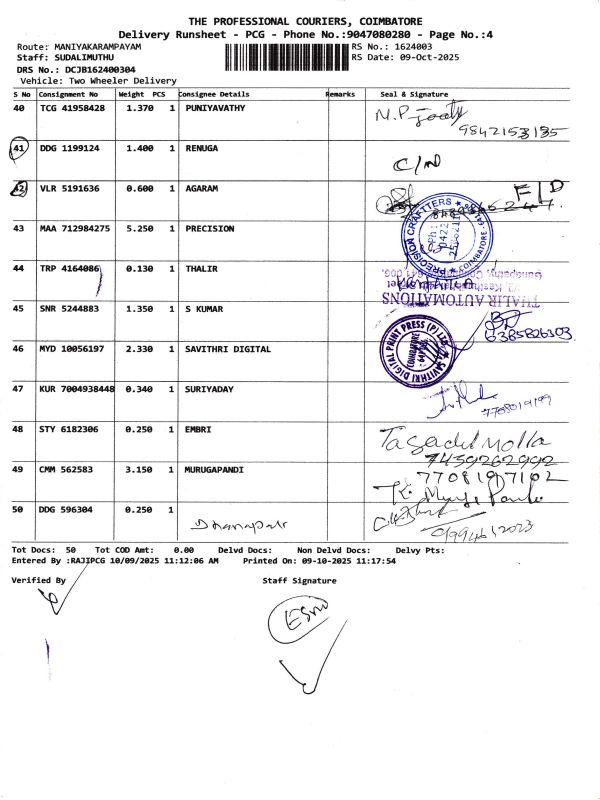 THE PROFESSIONAL COURIERS, COIMBATORE
Delivery Runsheet - PCG - Phone No.:9047080280 - Page No.:4
Route: MANIYAKARAMPAYAM RS No.: 1624003
Staff: SUDALIMUTHU RS Date: 09-Oct-2025
DRS No.: DCJB162400304
Vehicle: Two Wheeler Delivery
S No Consignment No Weight PCS Consignee Details Remarks Seal & Signature
40 TCG 41958428 1.370 1 PUNIYAVATHY
9842153135
41 DDG 1199124 1.400 1 RENUGA C/N
42 VLR 5191636 0.600 1 AGARAM F/D
43 MAA 712984275 5.250 1 PRECISION PRECISION CRAFTTERS COIMBATORE
44 TRP 4164086 0.130 1 THALIR THALIR AUTOMATIONS
45 SNR 5244883 1.350 1 S KUMAR 6385826303
46 MYD 10056197 2.330 1 SAVITHRI DIGITAL SAVITHRI DIGITAL PRINT PRESS (P) LTD. COIMBATORE
47 KUR 7004938448 0.340 1 SURIYADAY 7708019199
48 STY 6182306 0.250 1 EMBRI Molla
7439262992
49 CMM 562583 3.150 1 MURUGAPANDI 7708197102
50 DDG 596304 0.250 1
Dhanapalr
Tot Docs: 50 Tot COD Amt: 0.00 Delvd Docs: Non Delvd Docs: Delvy Pts:
Entered By :RAJIPCG 10/09/2025 11:12:06 AM Printed On: 09-10-2025 11:17:54
Verified By Staff Signature